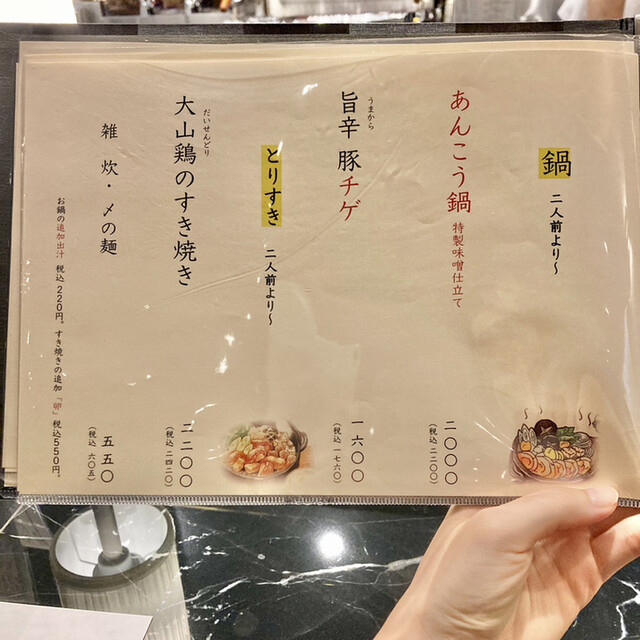 鍋 二人前より〜
あんこう鍋 特製味噌仕立て 二〇〇〇
（税込 二二〇〇）
うまから
旨辛 豚チゲ 一六〇〇
（税込 一七六〇）
とりすき 二人前より〜
だいせんどり
大山鶏のすき焼き 二二〇〇
（税込 二四二〇）
雑炊・〆の麺 五五〇
（税込 六〇五）
お鍋の追加出汁 税込 220円。すき焼きの追加「卵」税込550円。